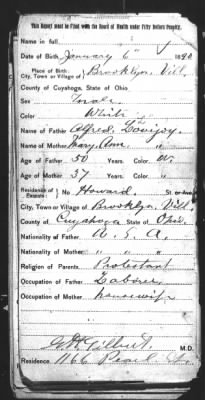 This Report must be Filed with the Board of Health under Fifty Dollars Penalty.
Name in full,
Date of Birth January 6" 1890
Place of Birth
City, Town or Village of Brooklyn Vill,
County of Cuyahoga, State of Ohio.
Sex
Color White
Name of Father Alfred Lovejoy
Name of Mother Mary Ann "
Age of Father 50 Years. Color W.
Age of Mother 37 Years. Color "
Residence of Parents: No Howard St. or Ave.
City, Town or Village of Brooklyn Vill
County of Cuyahoga State of Ohio.
Nationality of Father U. S. A,
Nationality of Mother " " "
Religion of Parents Protestant
Occupation of Father Laborer
Occupation of Mother housewife
Gilbert, M.D.
Residence, 1166 Pearl St.